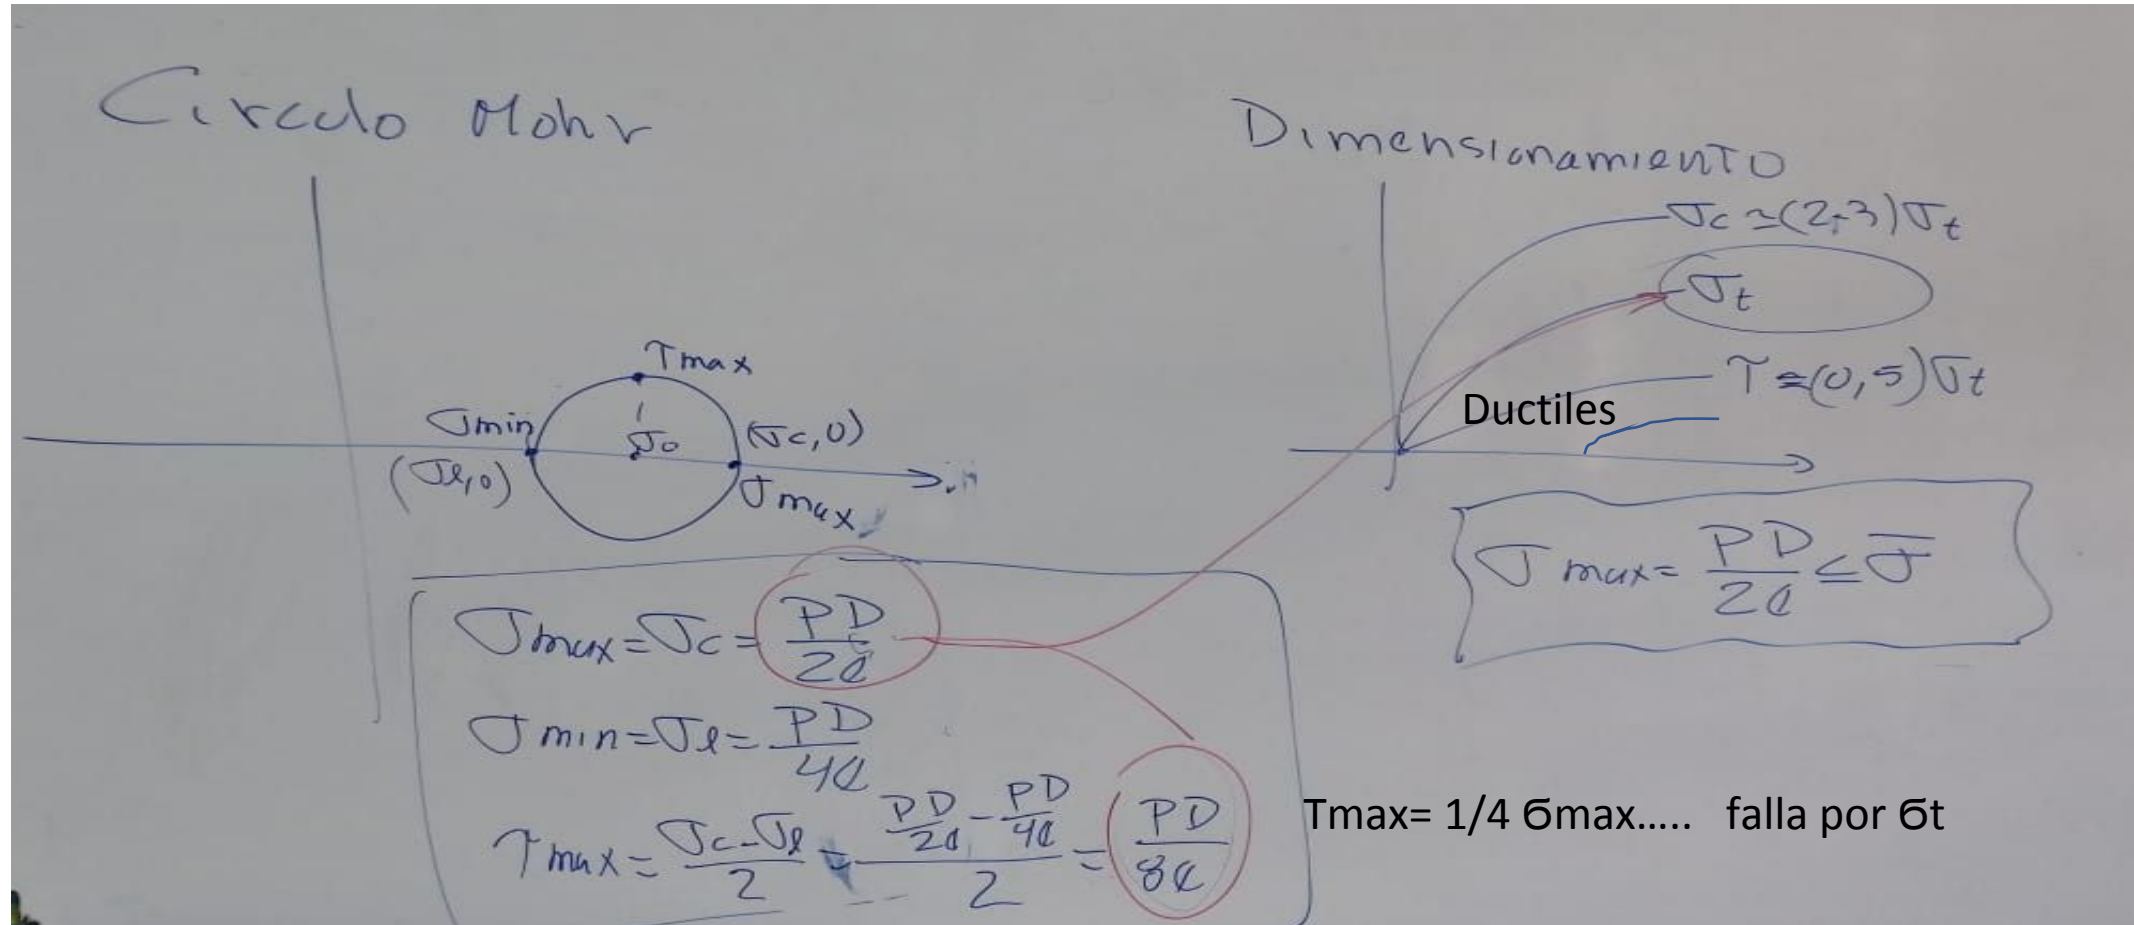 Circulo Mohr
Tmax
σmin
σo
(σc,0)
(σl,0)
σmax
σmax = σc = PD/2e
σmin = σl = PD/4e
τmax = (σc - σl)/2 = (PD/2e - PD/4e)/2 = PD/8e
Dimensionamiento
σc ≃ (2-3)σt
σt
τ ≃ (0,5)σt
Ductiles
σmax = PD/2e ≤ σ̅
Tmax= 1/4 Ϭmax..... falla por Ϭt